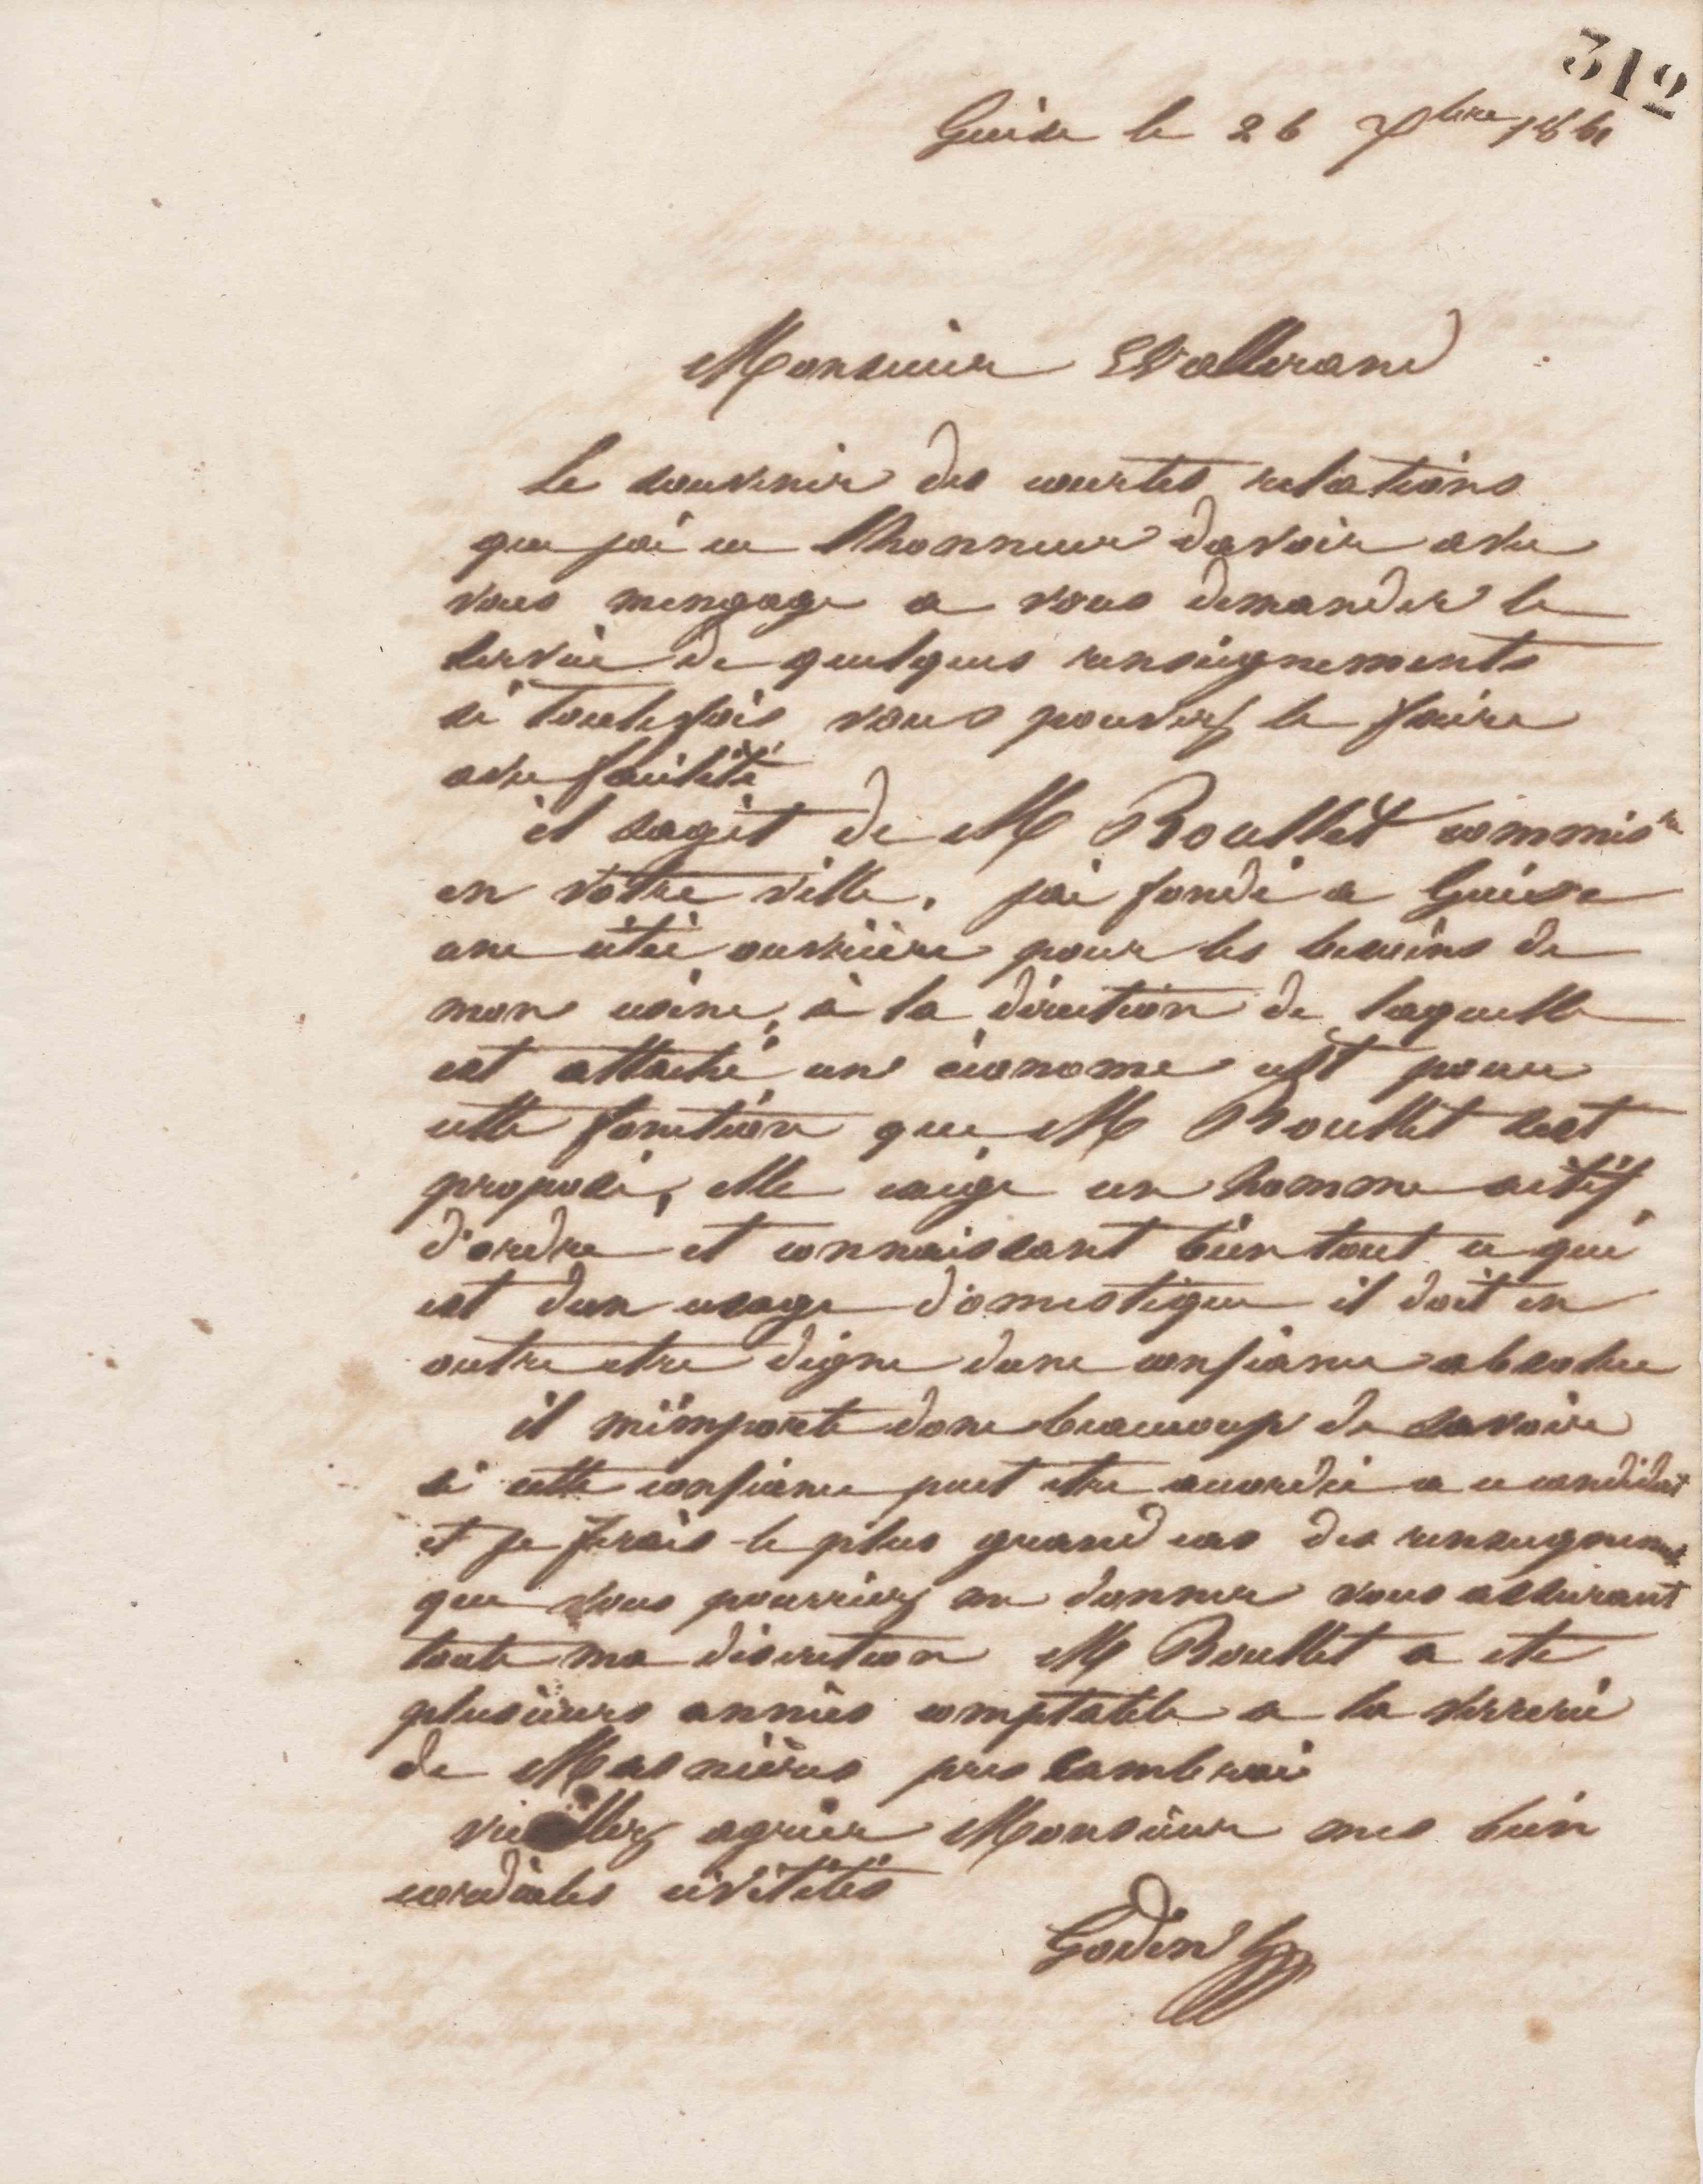 312
Guise le 26 7bre 1861
Monsieur Wallerand
le souvenir des courtes relations
que jai eu lhonneur davoir avec
vous mengage a vous demander le
service de quelques renseignements
si toutefois vous pouvez le faire
avec facilité
il sagit de M Roullet commis
en votre ville. jai fondé a Guise
une cité ouvrière pour les besoins de
mon usine, à la direction de laquelle
est attaché un économe cest pour
cette fonction que M Roullet sest
proposé, elle exige un homme actif,
d'ordre et connaissant bien tout ce qui
est dun usage domestique il doit en
outre etre digne dune confiance absolue
il m'importe donc beaucoup de savoir
si cette confiance peut etre accordée a ce candidat
et je ferais le plus grand cas des renseignements
que vous pourriez me donner vous assurant
toute ma discretion M Roullet a ete
plusieurs années comptable a la verrerie
de Masnières pres Cambrai
veuillez agréer Monsieur mes bien
cordiales civilités
Godin